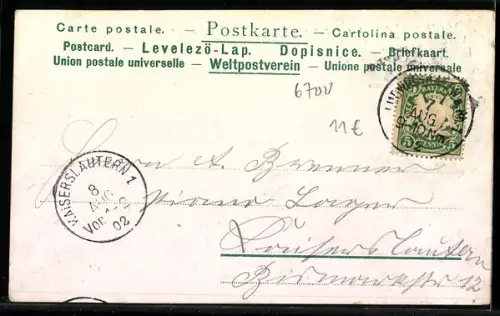 Carte postale. — Postkarte. — Cartolina postale.
Postcard. — Levelezö-Lap. Dopisnice. — Briefkaart.
Union postale universelle — Weltpostverein — Unione postale universale
67011
11€
BAYERN
7
AUG
5
KAISERSLAUTERN 1
8
AUG
Vor. 1-2
02
Herrn A. Bremmer
Piano Lager
Kaiserslautern
Bismarckstr 12